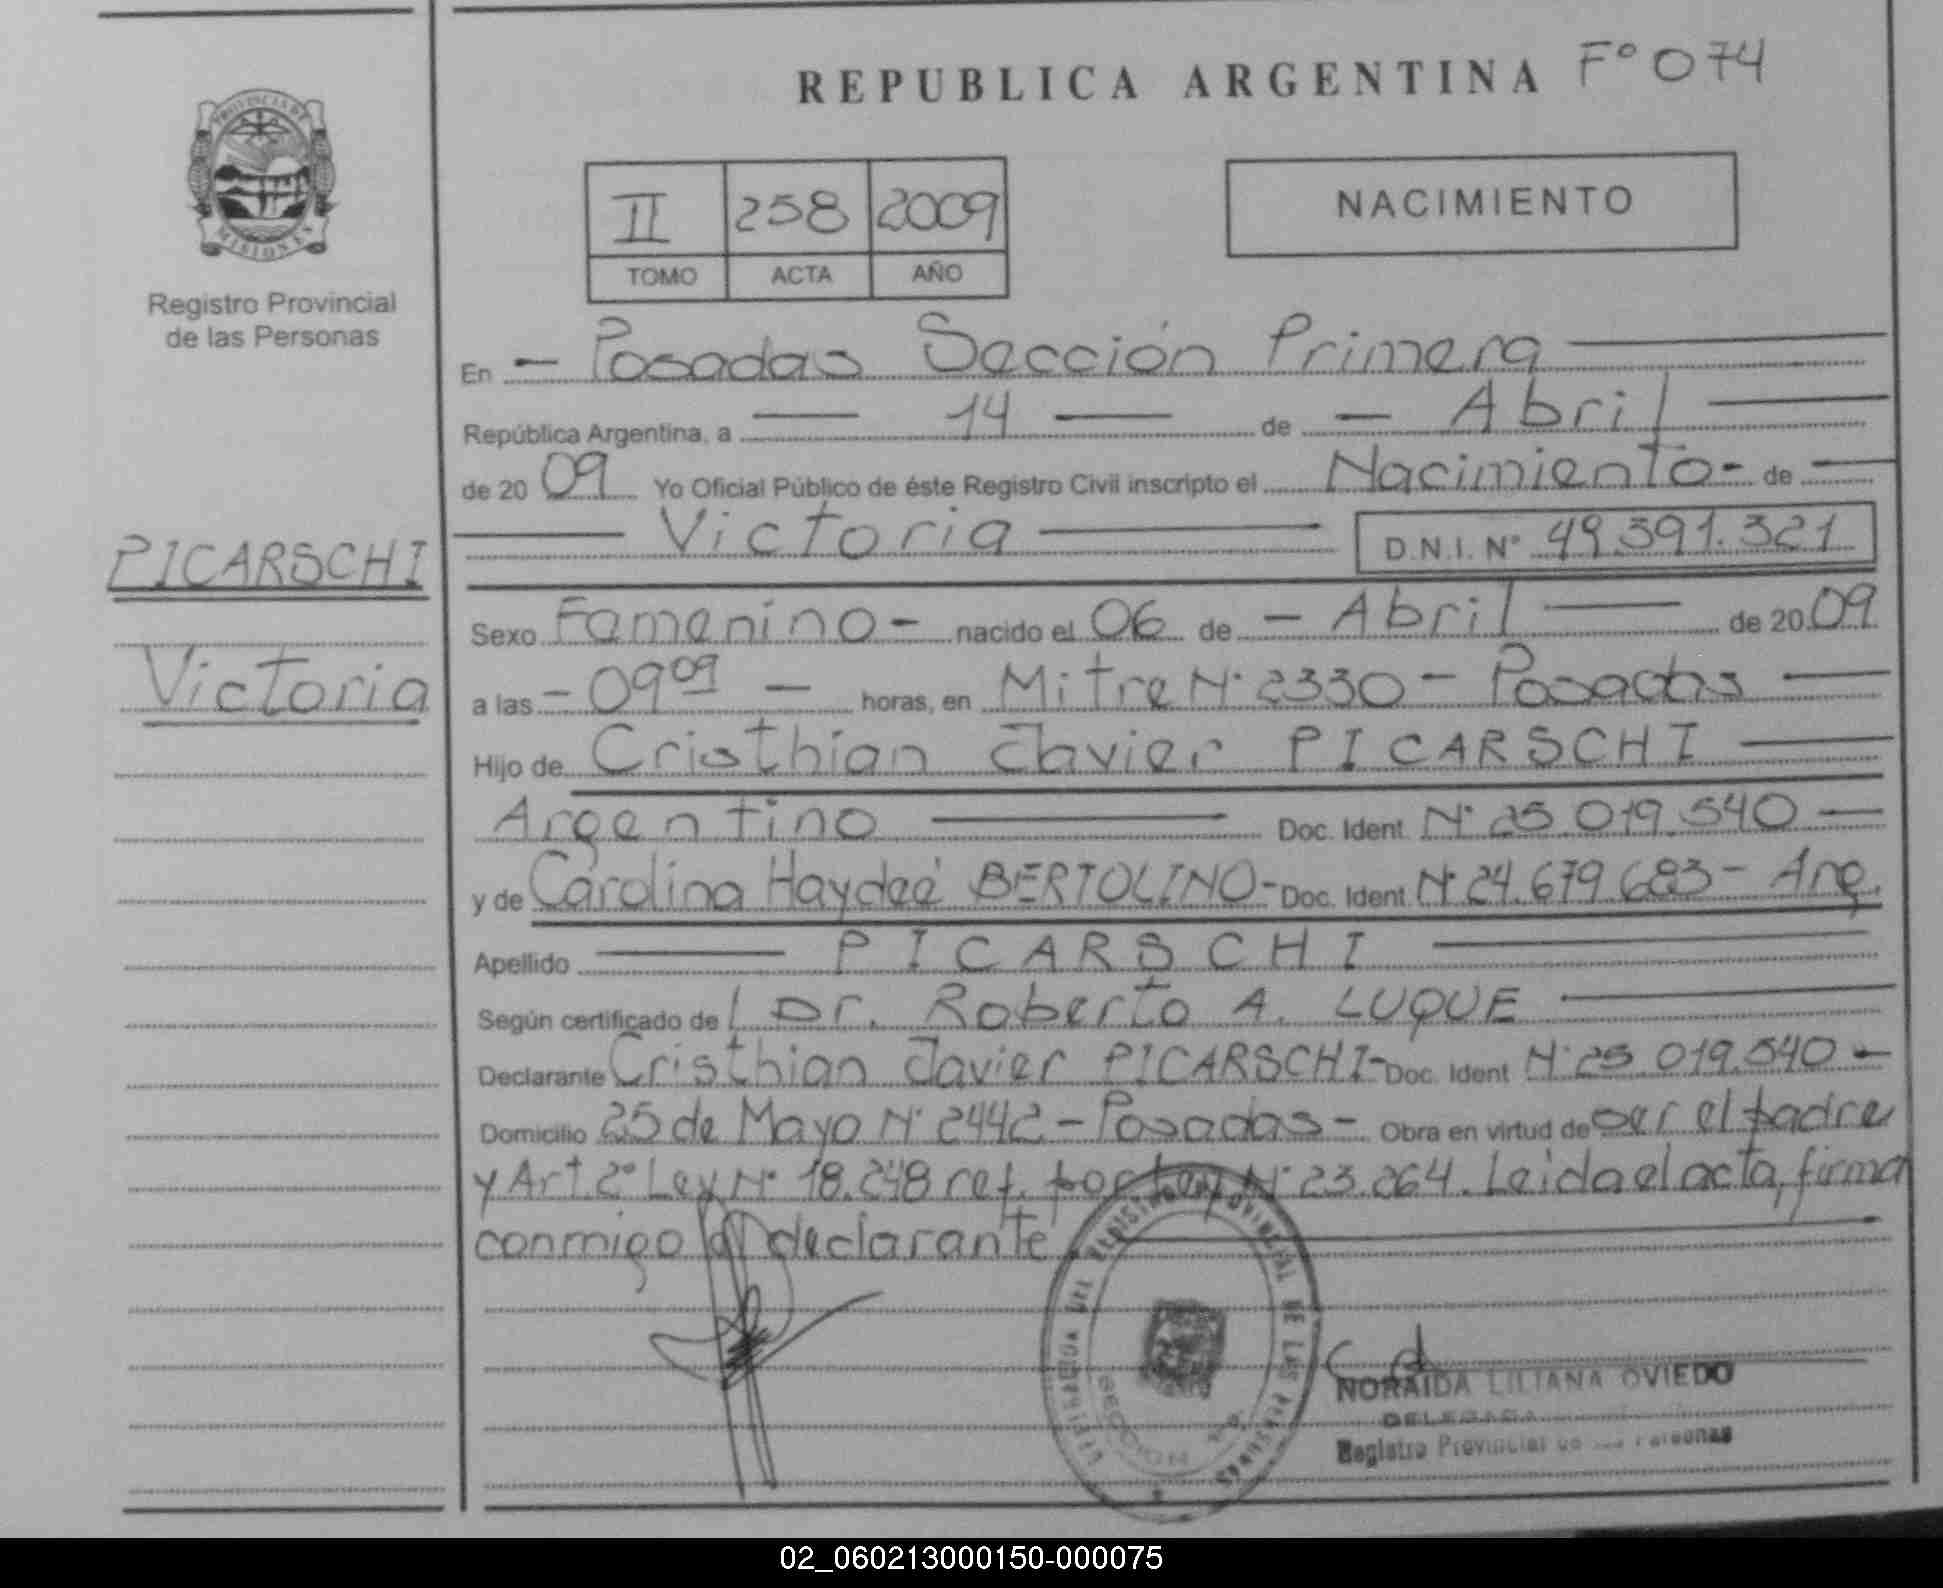 REPUBLICA ARGENTINA Fº 074
PROVINCIA DE
MISIONES
Registro Provincial
de las Personas
II 258 2009
TOMO ACTA AÑO
NACIMIENTO
En - Posadas Sección Primera
República Argentina, a 14 de - Abril
de 20 09 Yo Oficial Público de éste Registro Civil inscripto el Nacimiento- de
Victoria D.N.I. Nº 49.391.321
PICARSCHI
Victoria
Sexo Femenino - nacido el 06 de - Abril de 20 09
a las - 09 09 - horas, en Mitre Nº 2330 - Posadas
Hijo de Cristhian Javier PICARSCHI
Argentino Doc. Ident. Nº 25.019.540 -
y de Carolina Haydeé BERTOLINO- Doc. Ident. Nº 24.679.683 - Arg.
Apellido PICARSCHI
Según certificado de Dr. Roberto A. LUQUE
Declarante Cristhian Javier PICARSCHI- Doc. Ident Nº 25.019.540 -
Domicilio 25 de Mayo Nº 2442 - Posadas - Obra en virtud de ser el padre
y Art. 2º Ley Nº 18.248 ref. por Ley Nº 23.264. Leida el acta, firma
conmigo el declarante
REGISTRO PROVINCIAL DE LAS PERSONAS
SECCION
NORAIDA LILIANA OVIEDO
DELEGADA
Registro Provincial de las Personas
02_060213000150-000075